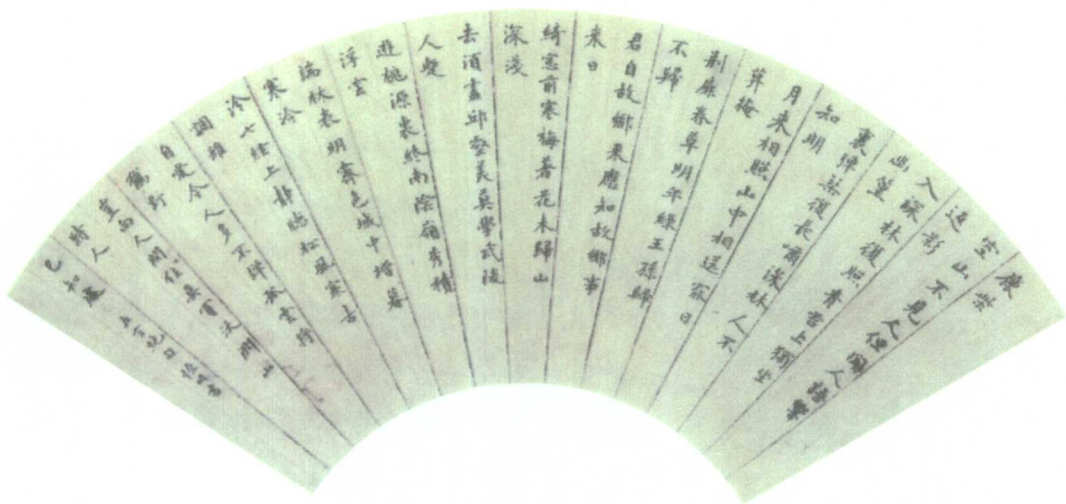 鹿柴
空山不見人但聞人語響
返影
入深林復照青苔上獨坐
幽篁
裏彈琴復長嘯深林人不
知明
月來相照山中相送罷日
暮掩
荆扉春草明年綠王孫歸
不歸
君自故鄉來應知故鄉事
來日
綺窓前寒梅著花未歸山
深淺
去須盡邱壑美莫學武陵
人暫
遊桃源裏終南陰嶺秀積
浮雲
端林表明霽色城中增暮
寒泠
泠七絃上靜聽松風寒古
調雖
自愛今人多不彈孤雲將
鶴野
豈向人間住莫買沃洲山
時人
已知處